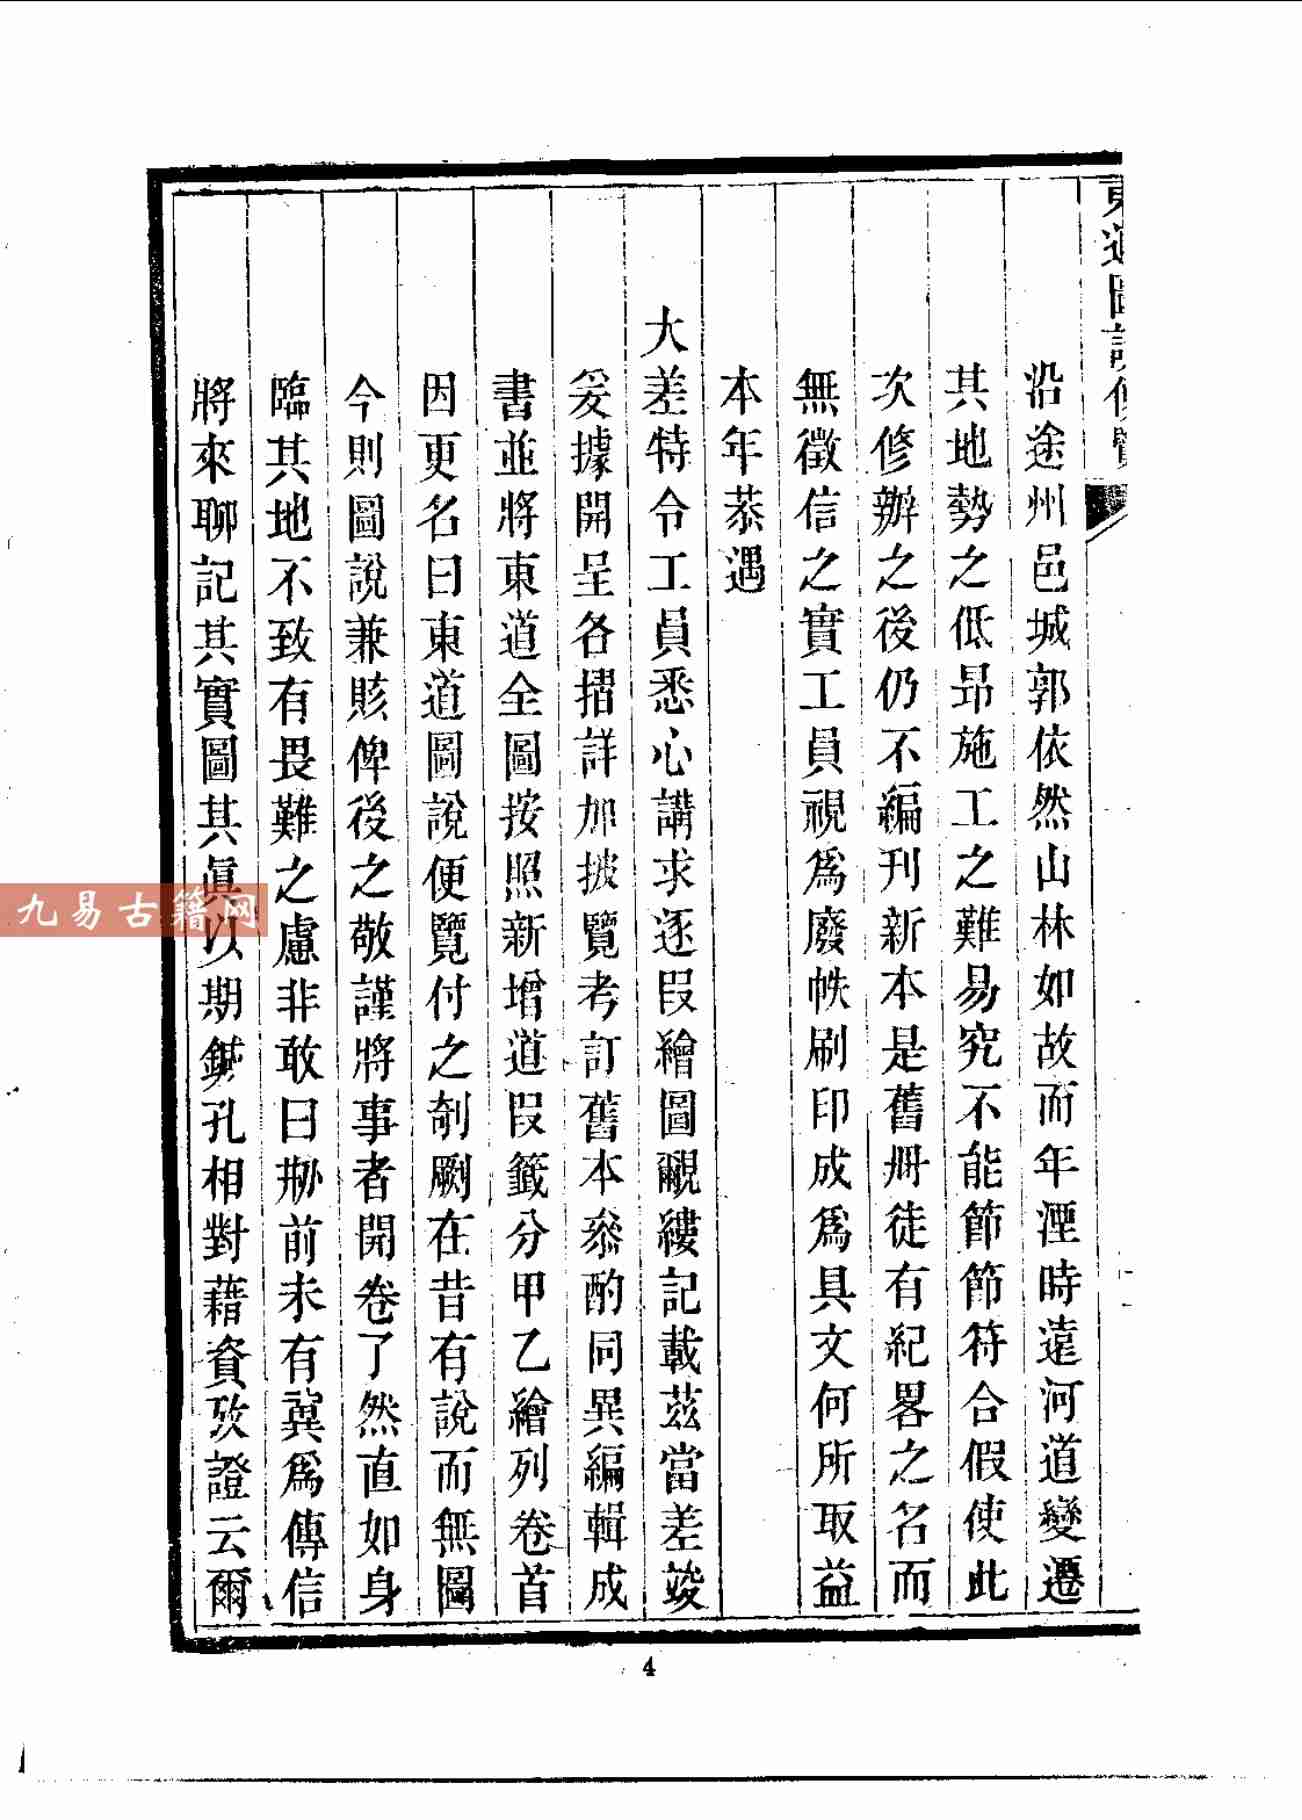 東道圖說便覽
沿途州邑城郭依然山林如故而年湮時遠河道變遷
其地勢之低昂施工之難易究不能節節符合假使此
次修辦之後仍不編刊新本是舊冊徒有紀畧之名而
無徵信之實工員視爲廢帙刷印成爲具文何所取益
本年恭遇
大差特令工員悉心講求逐段繪圖覼縷記載茲當差竣
爰據開呈各摺詳加披覽考訂舊本叅酌同異編輯成
書並將東道全圖按照新增道段籤分甲乙繪列卷首
因更名曰東道圖說便覽付之剞劂在昔有說而無圖
今則圖說兼賅俾後之敬謹將事者開卷了然直如身
臨其地不致有畏難之慮非敢曰刱前未有冀爲傳信
將來聊記其實圖其眞以期鍼孔相對藉資攷證云爾
4
九易古籍网